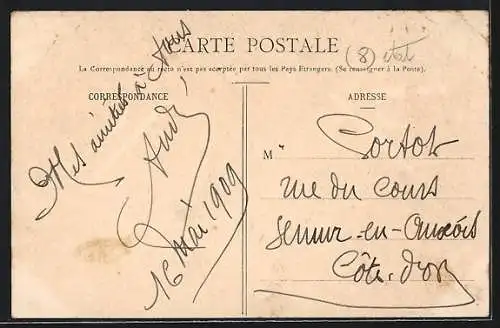 CARTE POSTALE
(8)
La Correspondance au recto n'est pas acceptée par tous les Pays Etrangers. (Se renseigner à la Poste).
CORRESPONDANCE
Mes amitiés à tous
André
16 Mai 1909
ADRESSE
M Cortot
rue du Cours
Semur-en-Auxois
Côte-d'or